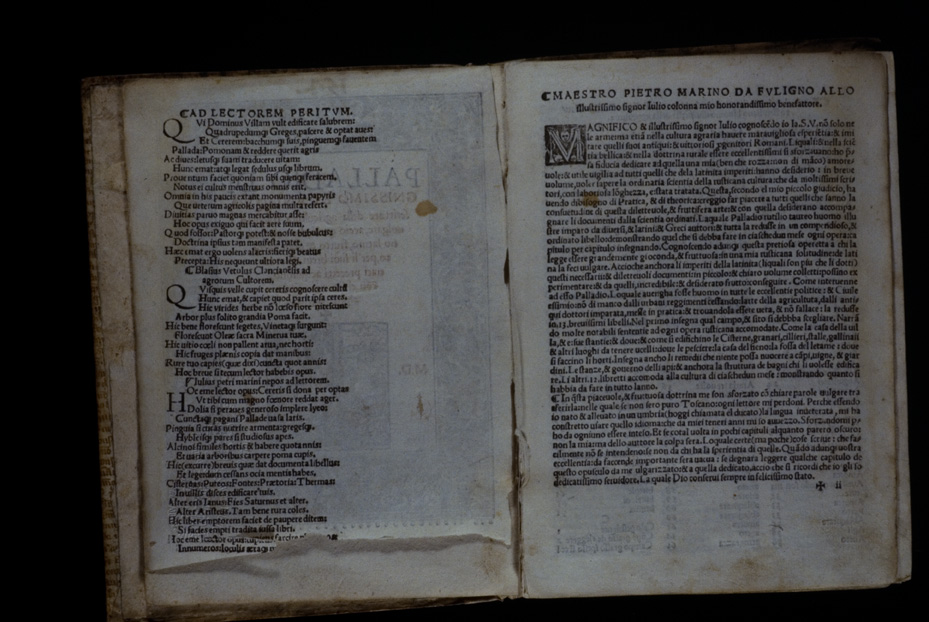 AD LECTOREM PERITVM.
Vi Dominus Villam vult edificare salubrem
Quadrupedumq; Greges, pascere & optat aues
Et Cererem bacchumq; suis, pinguemq;
Palladis Pomonam & reddere querit agris
Hunc emat: atq; legat sedulus usq; librum.
Prouentum faciet quoniam sibi
Notus ei cultus menstruus omnis erit.
Omnia in his paucis extant monumenta papyris
Que ueterum agricolis pagina multa refert.
Diuitias paruo magnas mercabitur
Hoc opus exiguo qui facit aere suum,
Quod fossor: Pastor: potest & nosse bubulcus:
Doctrina ipsius tam manifesta patet.
Hæc emat ergo uolens alacris fierique beatus
Precepta: His nequeunt ultiora legi.
Blasius Vetulus Clancianensis ad
agrorum Cultorem.
Quisquis velle cupit cereris cognoscere cultus
Hunc emat, & capiet quod parit ipsa ceres.
Hic virides herbe
Arbor plus solito grandia Poma facit.
Hic bene florescunt segetes, Vinetaq; surgunt:
Florescunt Oleæ sacra Minerua tuæ.
Hic uitio cœli non pallent atua, nec horti:
Hic fruges plænis copia dat manibus:
Rure tuo capies quæ dixi cuncta quot annis:
Hoc breue si tecum lector habebis opus.
Iulius petri marini nepos ad lectorem.
Or eme lector opus: Cereris si dona per optas
Vt tibi cum magno fœnore reddat ager.
Dolia si peraues generoso implere lyeo:
Cunctaq; pagani Palladè uasa laris.
Pinguia si cures nutrire armenta: gregesq;
Hyblesisq; pares si studiosus apes.
Alcinoi similes hortis & habere quot annis:
Et uaria arboribus carpere poma cupis.
Hic (excurre) breuis quæ dat documenta libellus:
Et legendum censans ocia mentis habes,
Cisternas: Puteos: Fontes: Prætoria: Thermas:
Inuillis disces edificare tuis.
Alter eris Ianus Eies Saturnus et alter.
Alter Aristeus. Tam bene rura coles.
Hic liber emptorem faciet de paupere ditem:
Si facies empti tradita iussa libri.
Hoc eme lector opus
Innumeros loculis
MAESTRO PIETRO MARINO DA FVLIGNO ALLO
illustrissimo signor Iulio colonna mio honorandissimo benefattore.
MAGNIFICO & illustrissimo signor Iulio cognoscēdo io la .S.V. nō solo ne
le arme: ma etiā nella cultura agraria hauere marauigliosa esperiētia: & imi
tare quelli suoi antiqui: & uittoriosi pgenitori Romani. Liquali: & nella sciē
tia bellica: & nella dottrina rurale essere eccellentissimi si sforzauano: ho p̄
sa fiducia dedicare ad quella una mia (ben che rozza: non di māco) amore
uole: & utile uigilia ad tutti quelli che dela latinita imperiti: hanno desiderio: in breue
volume, uolere sapere la ordinaria scientia della rusticana cultura: che da moltissimi scrit
tori, con laboriosa lōghezza, e stata tratata. Questa, secondo el mio piccolo giudicio, ha
uendo dibisogno di Pratica, & di theorica: spero far piacere a tutti questi che fanno la
consuetudine di questa diletteuole, & fruttifera arte: & con quella desiderano accompa
gnare li documenti dalla scientia ordinati. Laquale Palladio rutilio tauro huomo illu
stre imparo da diuersi, & latini: & Greci auttori: & tutta la redusse in un compendioso, &
ordinato libello: demonstrando quel che si debba fare in ciaschedun mese ogni opera: in
pitulo per capitulo insegnando. Cognoscendo adunq; questa pretiosa operetta a chi la
legge essere grandemente gioconda, & fruttuosa: in una mia rusticana solitudine de lati
na la feci uulgare. Accioche anchora li imperiti della latinita (liquali son piu che li dotti)
questi necessarii: & diletteuoli documenti in piccolo: & chiaro volume colletti: possino ex
perimentare: & da quelli, incredibile: & desiderato frutto conseguire. Come interuenne
ad esso Palladio. Loquale auenga fosse huomo in tutte le eccellentie politice: & C. iusse
essimo: nō di manco dalli urbani reggimenti cessando: larte della agricultura, dalli antis
qui dottori imparata, messe in pratica: & trouandola essere uera, & nō fallace: la redusse
in .13. breuissimi libelli. Nel primo insegna qual campo, & sito si debbba scegliare. Narrā
do molte notabili sententie ad ogni opera rusticana accomodate. Come la casa della uil
la, & esue stantie: & doue: & come si edifichino le Cisterne, granari, cillieri, stalle, gallinari
& altri luoghi da tenere uccelli: doue le pescine: la casa del henola fossa del letame: & doue
si faccino li horti. Insegna ancho li remedii che niente possa nuocere a cāpi, uigne, & giar
dini. Le stanze, & gouerno delli api: & anchora la struttura de bagni chi li uolesse edifica
re. Li altri .12. libretti accomoda alla cultura di ciaschedun mese: mostrando quanto si
habbia da fare in tutto lanno.
In q̄sta piaceuole, & fruttuosa dottrina me son sforzato cō chiare parole uulgare tra
sferirla: nelle quale se non sero puro Toscano: ogni lettore mi perdoni. Perche essendo
io nato & alleuato in un umbria (hoggi chiamata el ducato) la lingua inueterata, mi ha
constretto usare quello idioma: che da miei teneri anni mi io auuezzo. Sforzandomi p̄
ho da ogniuno essere inteso. Et se cotal uolta in pochi capituli alquanto parero obscuro
non la mia: ma dello auttore la colpa sera. Loquale certe (ma poche) cose scrisse: che fa
cilmente nō se intendono se non da chi ha la sperientia di quelle. Quādo adunq; uostra
eccellentia: da faccende importante sera uacua: se degnara leggere qualche capitulo de
questo opusculo da me ulgarizzato: & a quella dedicato, accio che si ricordi che io gli so
dedicatissimo seruidore. La quale Dio conserui sempre in felicissimo stato.
✠ ii